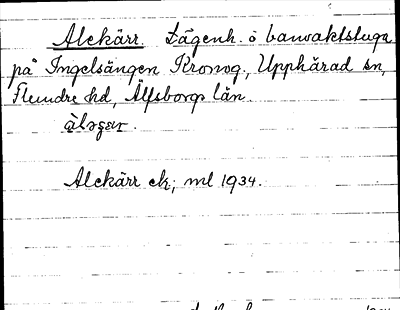 Alekärr. Lägenh. o banvaktstuga
på Ingelsången Kronog, Upphärad sn,
Flundre hd, Älfsborgs län.
Alekärr ek, ml 1934.